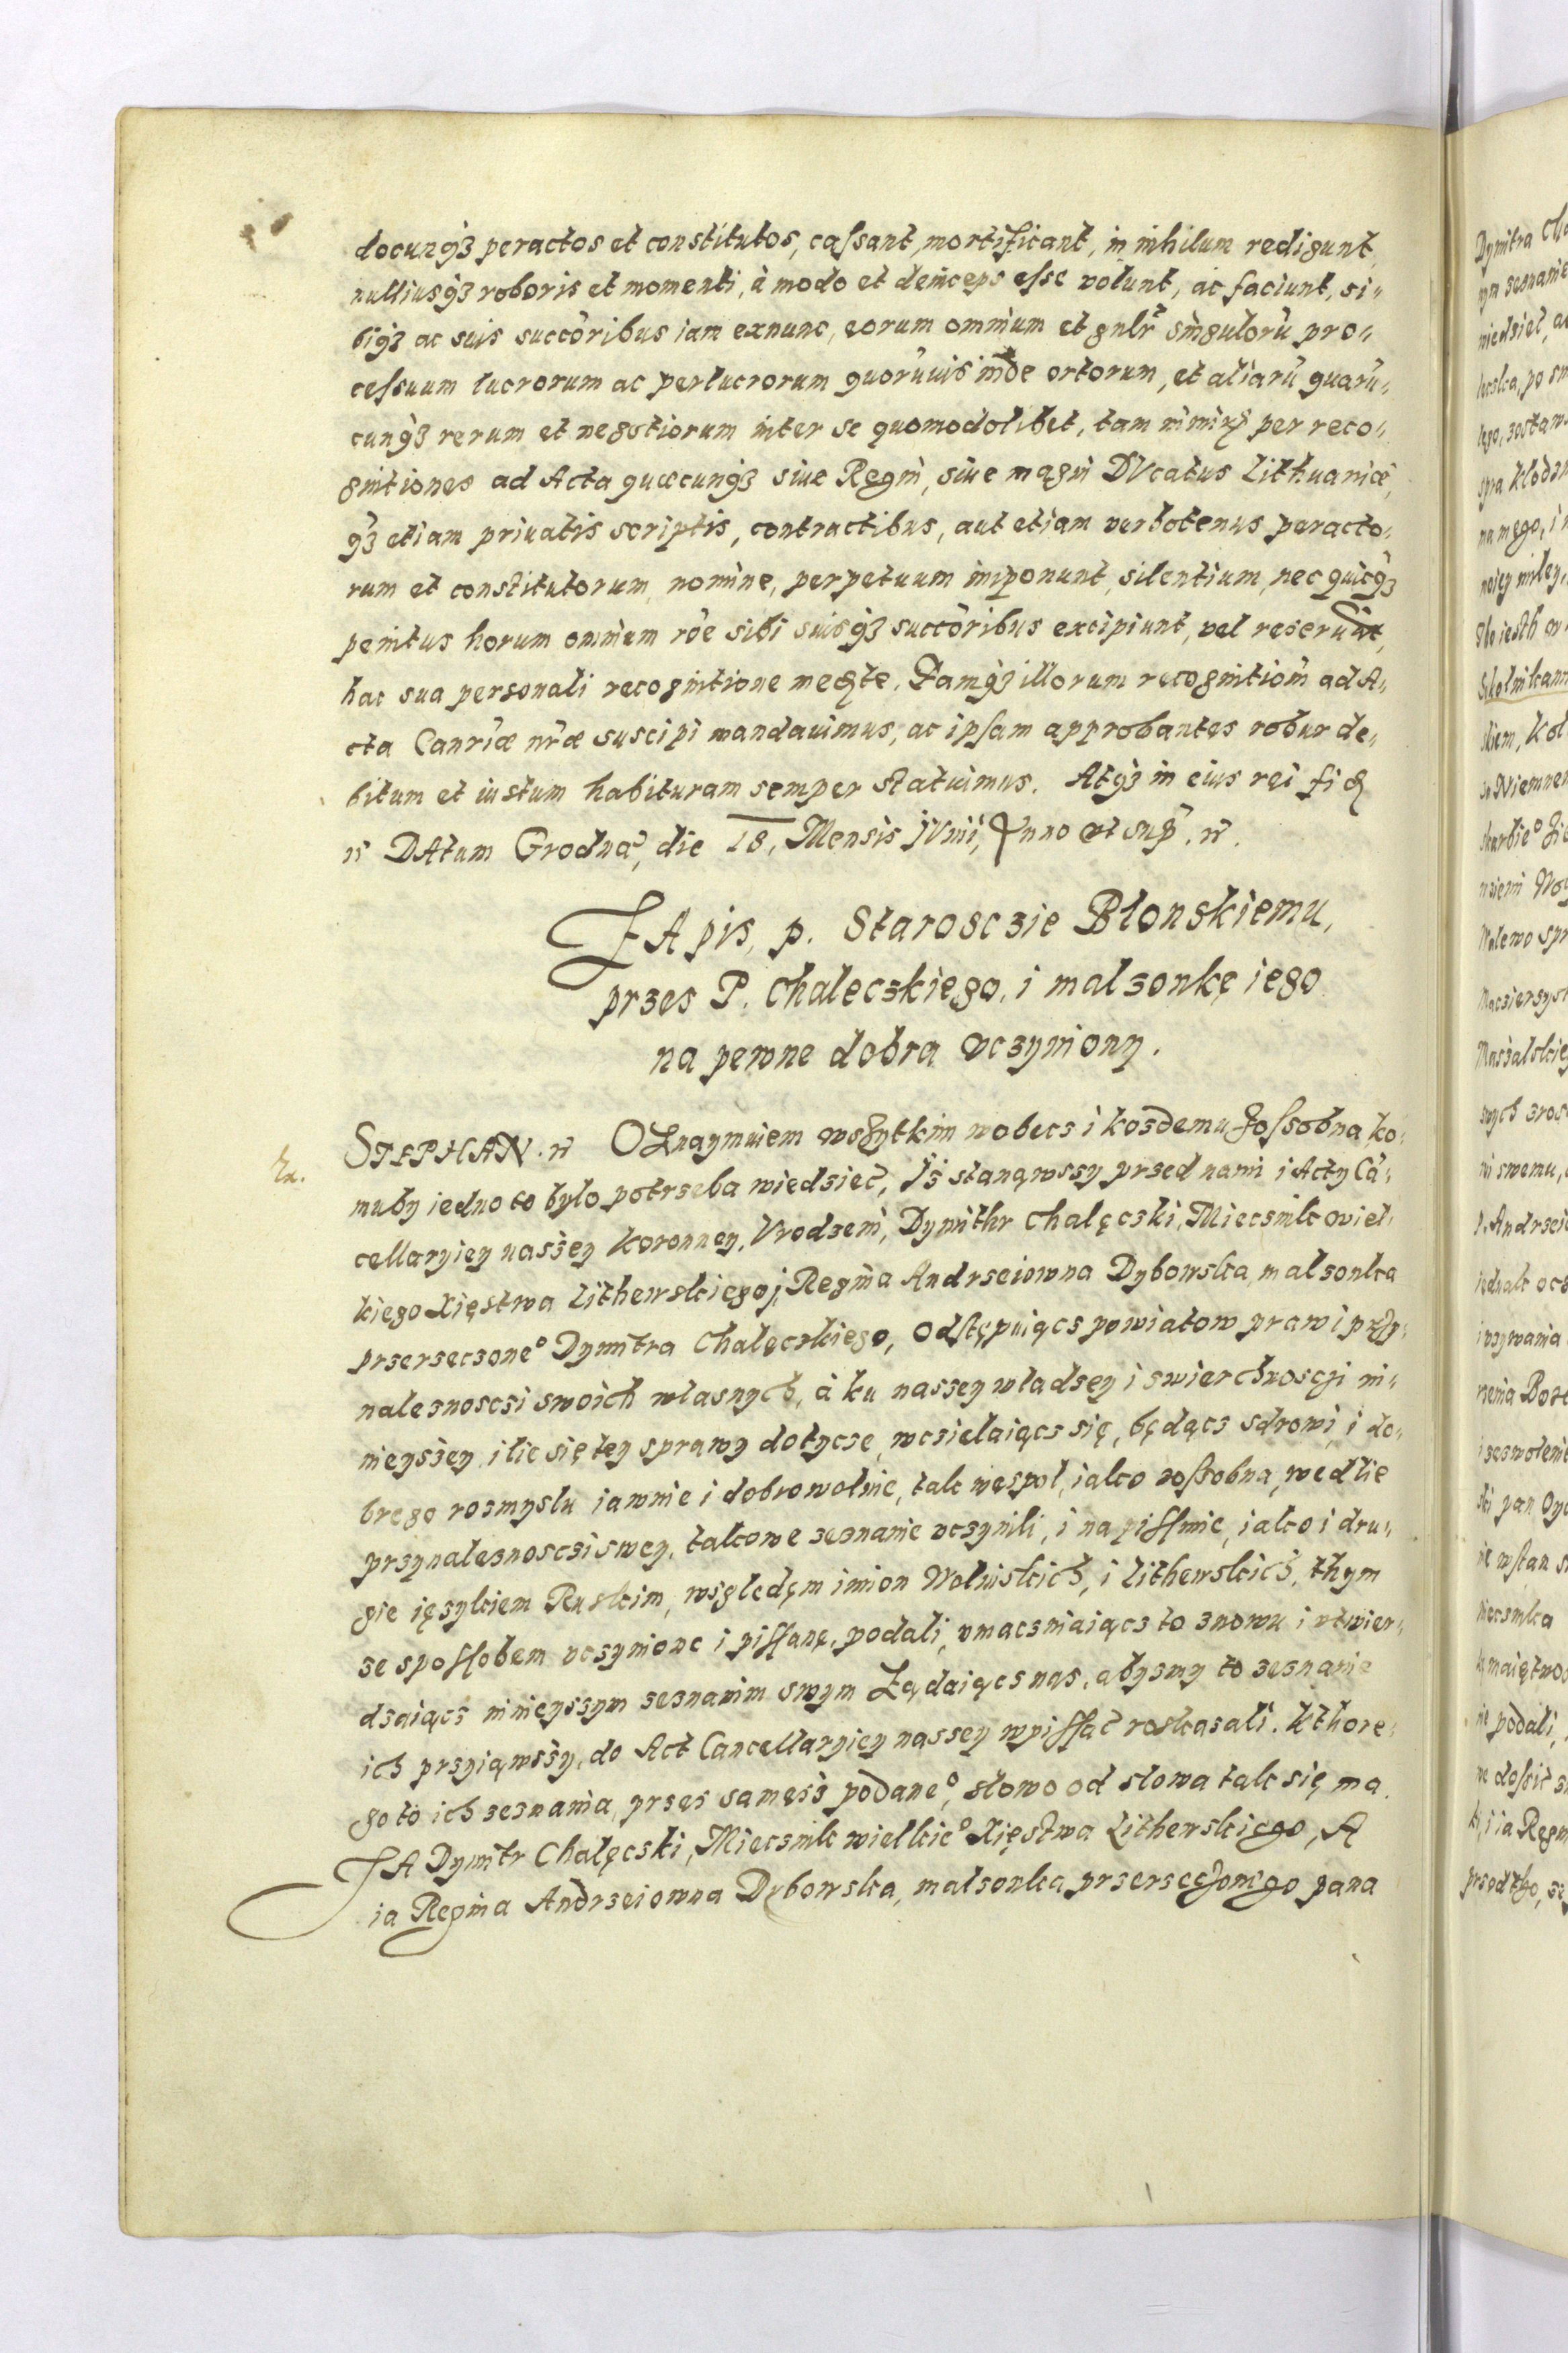 docunq3 peractos et constitutos, cassant, mortificant, in nihilum redigunt,
nulliusq3 roboris et momenti, à modo et deinceps esse volunt, ac faciunt, si-
biq3 ac suis succoribus iam exnunc, eorum omnium et gnlr singulorũ pro-
cessuum lucrorum ac perlucrorum quorũuis inde ortorum, et aliarũ quarũ-
cunq3 rerum et negotiorum inter se quomodolibet, tam per reco-
gnitiones ad Acta quæcunq3 siue Regni, siue magni DVcatus Lithuaniæ,
q3 etiam priuatis scriptis, contractibus, aut etiam verbotenus peracto-
rum et constitutorum, nomine, perpetuum imponunt, silentium, nec quicq3
penitus horum omnium rõe sibi suisq3 succoribus excipiunt, vel reseruãt,
hac sua personali recognitione medte. Eamq3 illorum recognitioñ ad A-
cta Canrĩæ nr̃æ suscipi mandauimus, ac ipsam approbantes robur de-
bitum et iustum habituram semper statuimus. Atq3 in eius rei fid
rc DAtum Grodnæ, die 18, Mensis JVnii, Anno vt sup. rc.
ZApis, p. Starosczie Błonskiemu,
przes P. Chaleczkiego, i malzonkę iego
na pewne dobra vczyniony.
STEPHAN. rc OZnaymuiem wszytkim wobecz i kozdemu zossobna ko-
muby iedno to było potrzeba wiedzieć, Jż stanąwszy przed nami i Acty Cã-
cellaryiey naszey koronney, Vrodzeni, Dymithr Chalęczki, Miecznik wiel-
kiego Xięstwa Lithewskiego, j Regina Andrzeiowna Dybowska, malzonka
przerzeczone° Dymitra Chalęczkiego, odstępuiącz powiatow praw i przy-
naleznosczi swoich własnych, à ku naszey władzęy i zwierchnosczi ni-
nieyszey, ilie się tey sprawy dotycze, wczielaiącz się, będącz zdrowi, i do-
brego rozmyslu iawnie i dobrowolnie, tak wespol, iako zossobna, wedlie
przynaleznosczi swey, takowe zeznanie vczynili, i na pissmie, iako i dru-
gie ięzykiem Ruskim, względęm imion Wolinskich, i Lithewskich, thym
ze spossobem vczynione i pissanę, podali, vmaczniaiącz to znowu i vtwier-
dzaiącz ninieyszym zeznanim swym Ządaiącz nas, abysmy to zeznanie
ich przyiąwszy, do Act Cancellaryiey naszey wpissać roskazali. Kthore-
go to ich zeznania, przes samęż podane°, słowo od slowa tak się ma.
JA Dymitr Chalęczki, Miecznik wielkie° Xięstwa Lithewskiego, A
ia Regina Andrzeiowna Dybowska, malzonka przerzeczonego pana